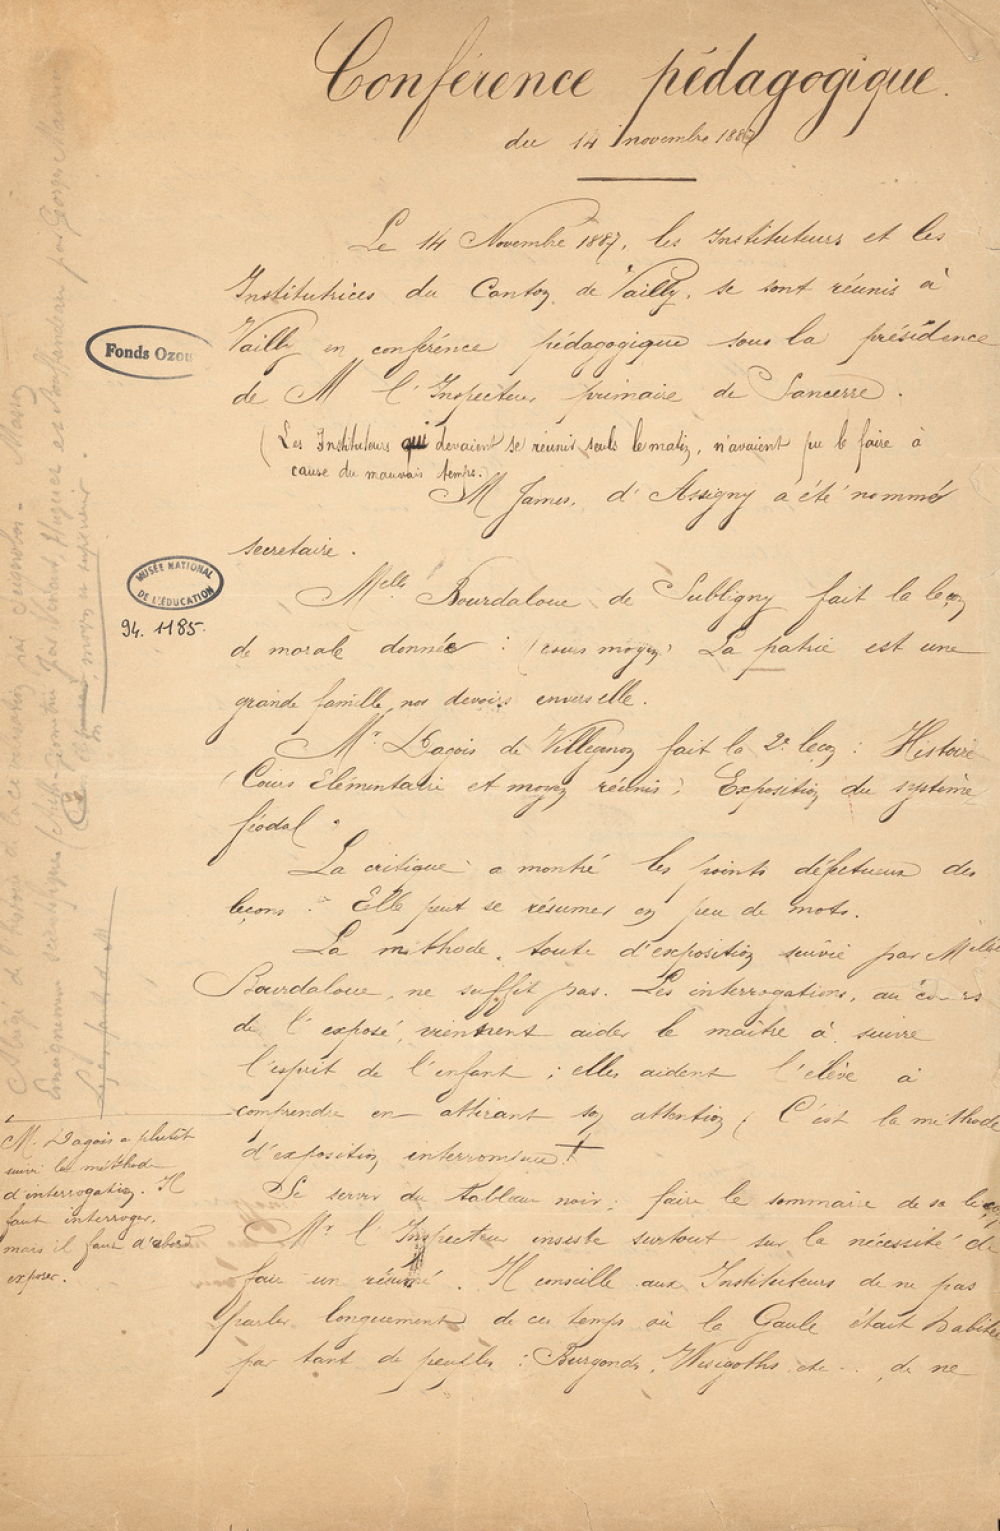 Conférence pédagogique.
du 14 novembre 1887
Le 14 Novembre 1887, les Instituteurs et les
Institutrices du Canton de Vailly, se sont réunis à
Fonds Ozou
Vailly en conférence pédagogique sous la présidence
de M l'Inspecteur primaire de Sancerre.
(Les Instituteurs qui devaient se réunir seuls le matin, n'avaient pu le faire à
cause du mauvais temps.)
M James, d'Assigny a été nommé
secretaire.
MUSÉE NATIONAL
DE L'ÉDUCATION
94. 1185.
Melle Bourdaloue de Subligny fait la leçon
de morale donnée : (cours moyen) La patrie est une
grande famille, nos devoirs envers elle.
Mr Dagois de Villegenon fait la 2e leçon : Histoire
(Cours Elémentaire et moyen réunis) Exposition du système
féodal.
La critique a montré les points défectueux des
leçons. Elle peut se résumer en peu de mots.
La méthode, toute d'exposition suivie par Melle
Bourdaloue, ne suffit pas. Les interrogations, au cours
de l'exposé, viennent aider le maître à suivre
l'esprit de l'enfant ; elles aident l'élève à
comprendre en attirant son attention (C'est la méthode
d'exposition interrompue)
M. Dagois a plutôt
suivi la méthode
d'interrogation. Il
faut interroger,
mais il faut d'abord
exposer.
Se servir du tableau noir ; faire le sommaire de sa leçon
Mr l'Inspecteur insiste surtout sur la nécessité de
faire un résumé. Il conseille aux Instituteurs de ne pas
parler longuement de ces temps où la Gaule était habitée
par tant de peuples : Burgondes, Wisigoths etc... de ne
Abrégé de l'histoire de la civilisation par Seignobos - Masson
Enseignement scientifique